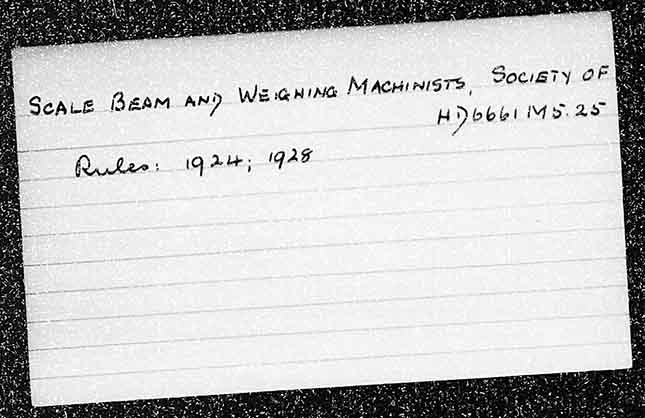 SCALE BEAM AND WEIGHING MACHINISTS, SOCIETY OF
HD6661 M5.25
Rules: 1924; 1928